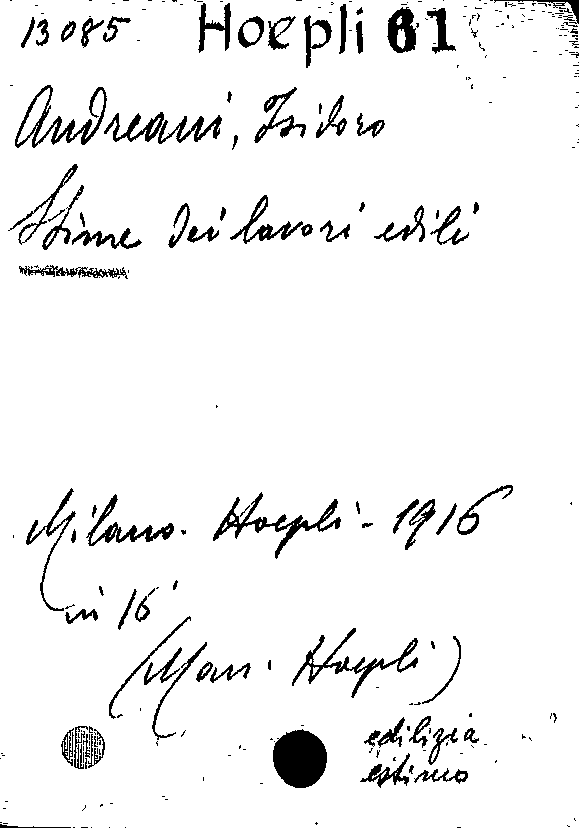 13085 Hoepli 61
Andreani, Isidoro
Stime dei lavori edili
Milano. Hoepli - 1916
in 16°
(Man. Hoepli)
edilizia
estimo